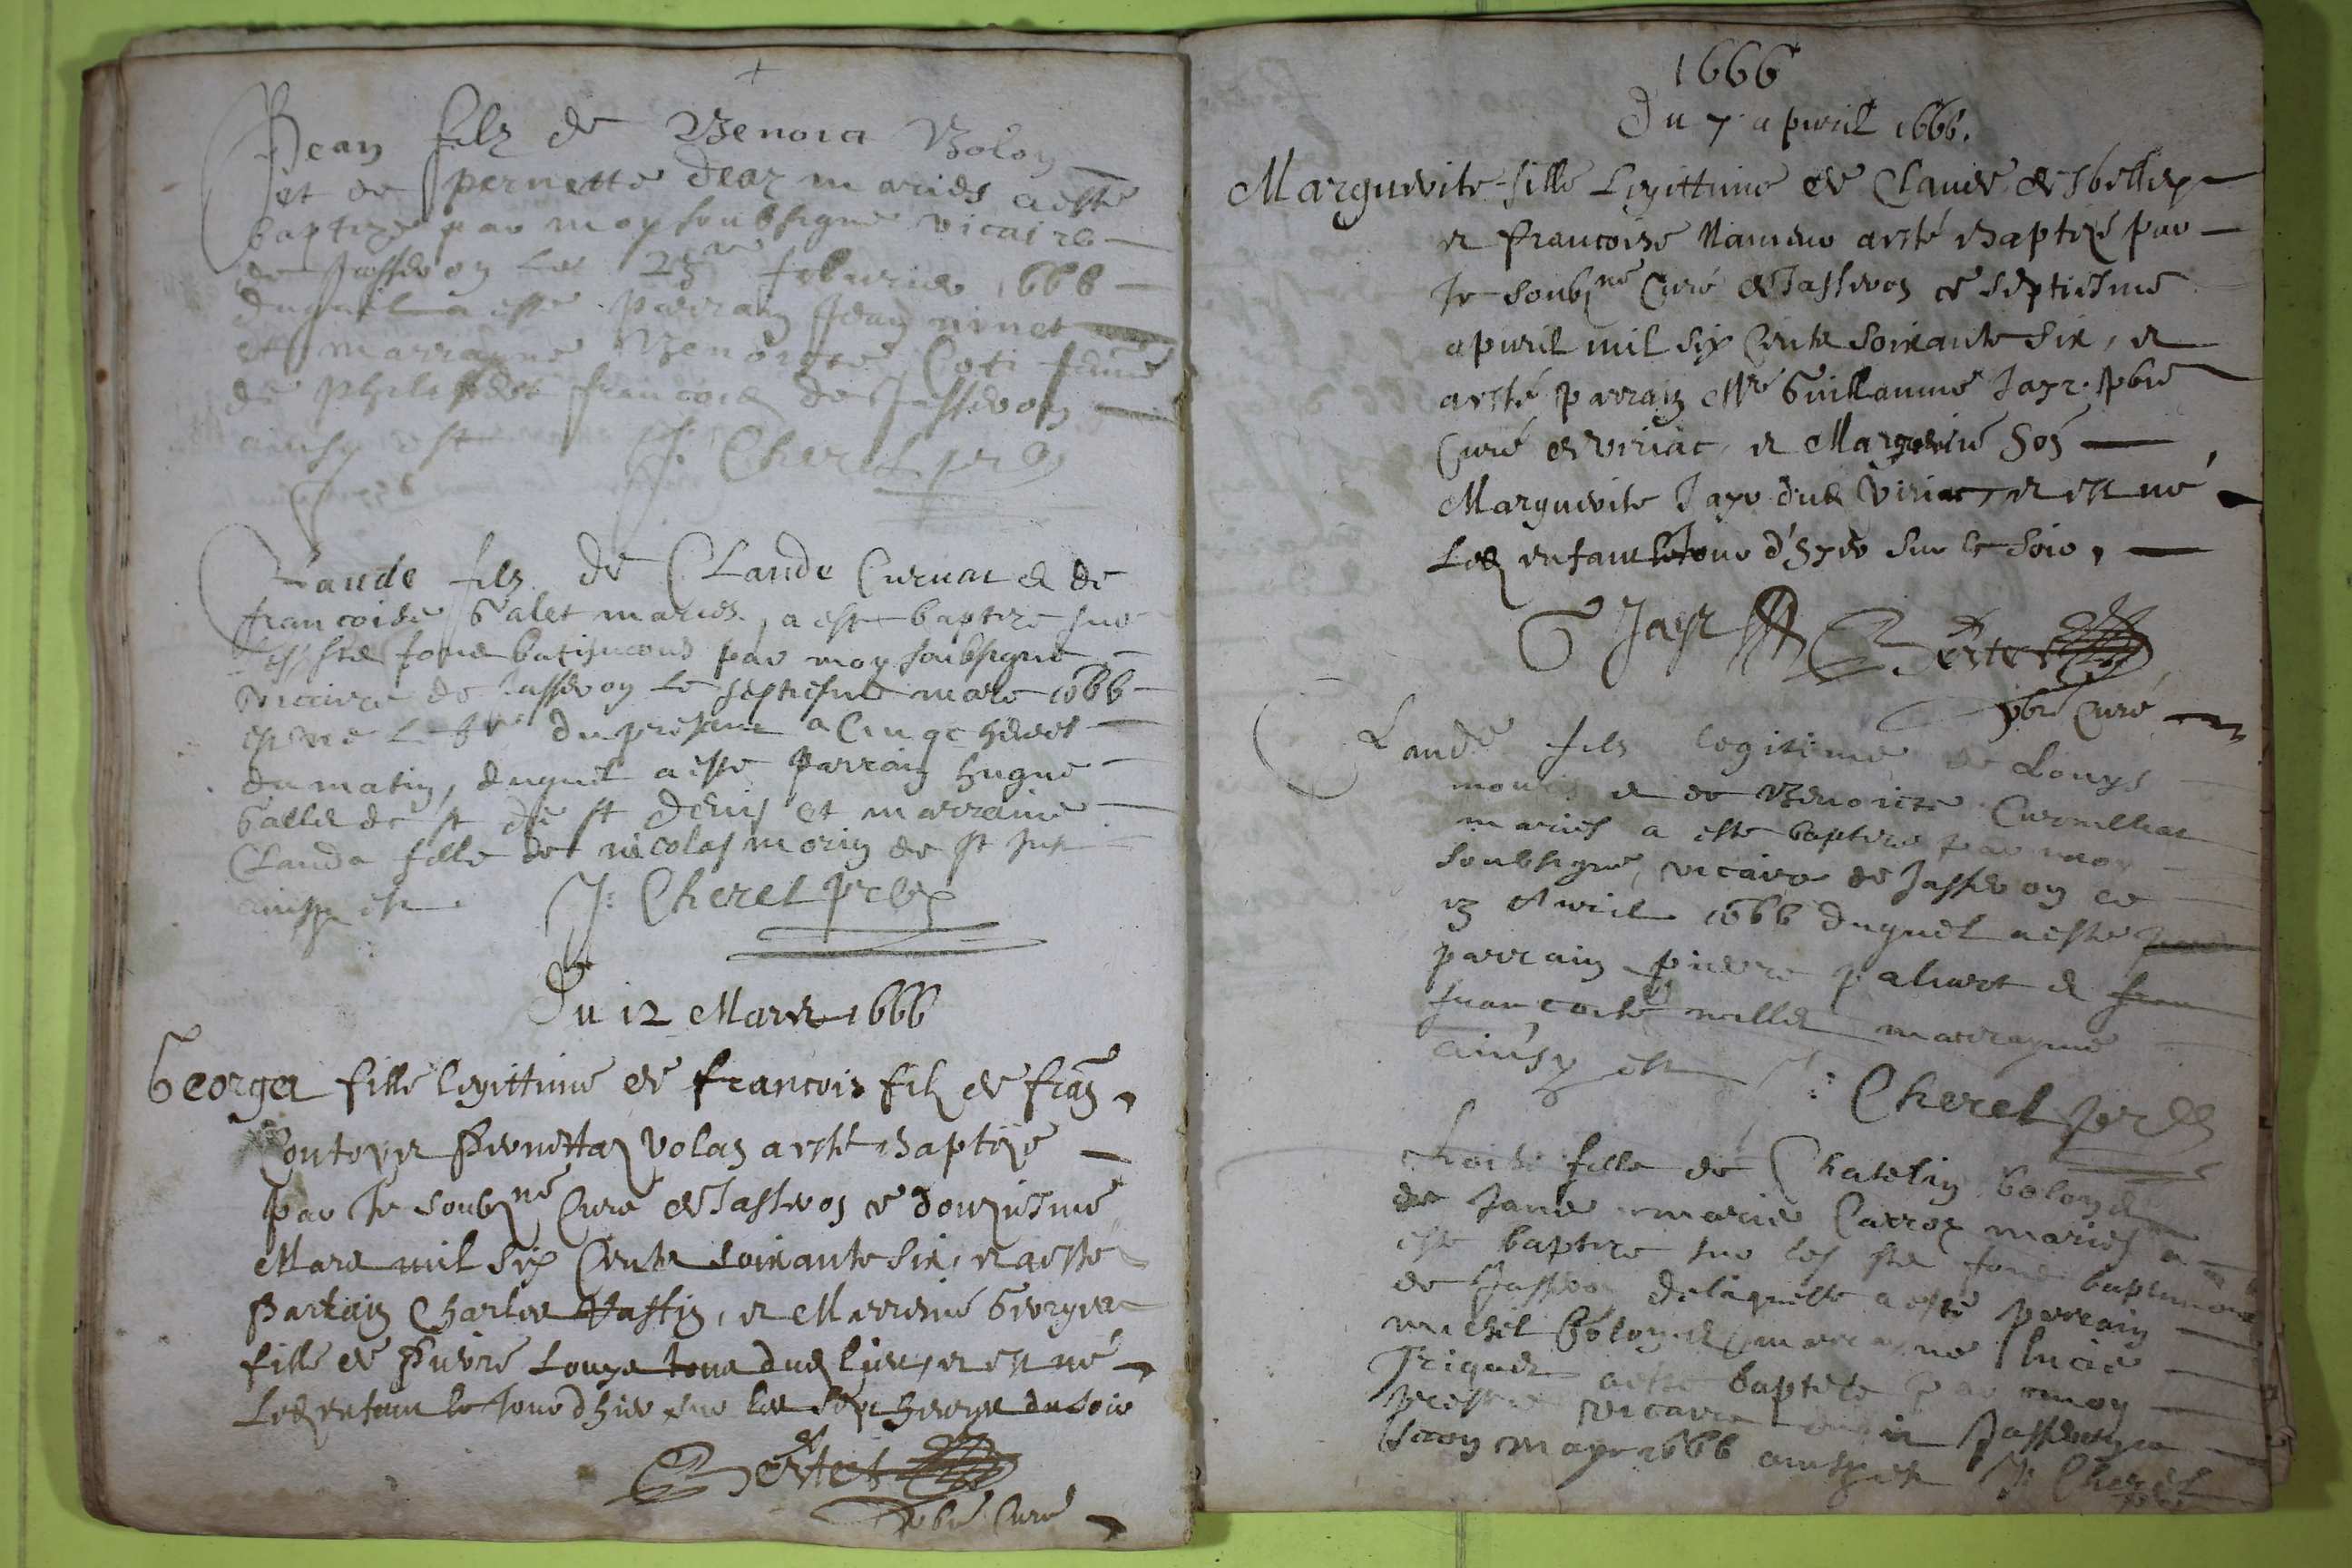 Jean filz de Benoict Bolon
et de pernette dear mariés a esté
baptizé par moy soubsigné vicaire
de Jasseron le 25me feburier 1666
duquel a esté parrain Jean ninet
et marrayne Benoiste Coti fame
de philibert francois de Jasseron
ainsy est J: Cherel ptre
Claude filz de Claude Curnat & de
francoise Galet mariés, a esté baptizé sur
les sts fons batismaus par moy soubsigné
vicaire de Jasseron le septiesme mars 1666
est né le du presant a cinqt heures
du matin, duquel a esté parrain hugue
Gallet de st de st denis et marraine
Clauda fille de nicolas morin de st Just
ainsy est J: Cherel ptre
Du 12 Mars 1666
George fille legittime de francois filz de fran
et pernetta Volaz a esté Baptizé
par Je soubzne Curé de Jasseron ce douziesme
Mars mil six Cents soixante six, et a esté
Parrain Charles Vastin, et Marreine George
fille de Pierre Louys dud lieu, et est né
Led enfant le Jour d'hier sur les sept heures du soir
Bertet
pbre Curé
1666
Du 7 apvril 1666.
Marguerite fille Legittime de Claude
et Francoise a esté Baptizé par
Je soubzne Curé de Jasseron ce septiesme
apvril mil six Cents soixante six, et
a esté parrain Mre Guillaume Jayr pbre
Curé de Viriac, et Marreine Son
Marguerite Jayr dud Viriac, et est né
Led enfant le Jour d'hyer sur le soir,
G Jayr Bertet
pbre Curé
Claude filz legitime de Louys
et de Benoicte Curnillhat
mariés a esté baptizé par moy
soubsigné, vicaire de Jasseron ce
13 Avril 1666 duquel a esté
parrain pierre paluat &
francoise millet marrayne
ainsy est J: Cherel ptre
fille de Chatelin bolon &
de Jane marie Carroz mariés a
esté baptizé sur les sts fons baptismaus
de Jasseron delaquelle a esté parrain
michel bolon & marrayne lucie
friquet a esté baptizé par moy
prestre vicaire Jasseron ce
may 1666 ainsy est J: Cherel
ptre